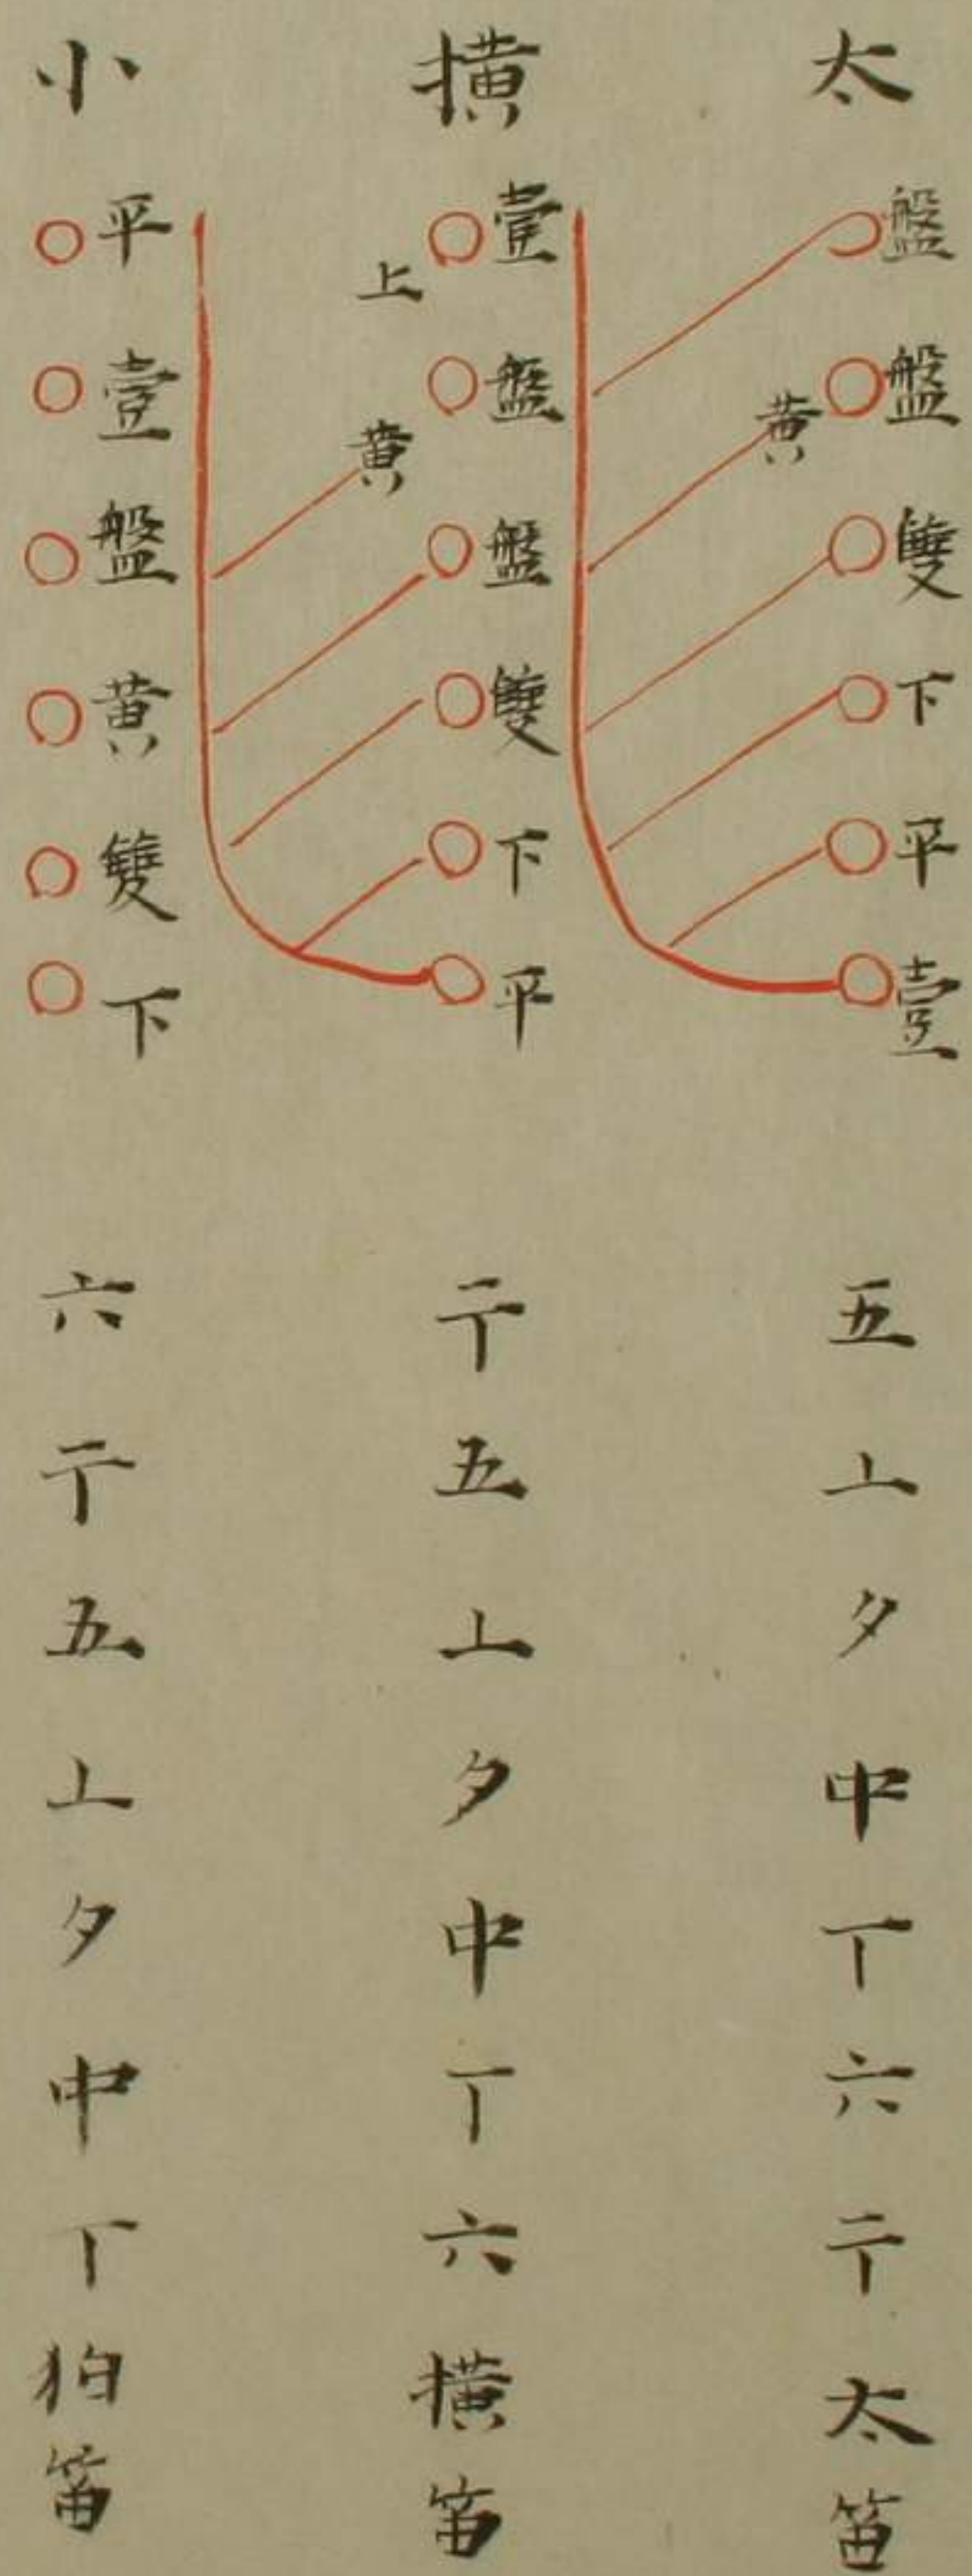 太
盤
盤
黄
雙
下
平
壹
五
丄
夕
中
丅
六
亍
太
笛
横
壹
上
盤
黄
盤
雙
下
平
亍
五
丄
夕
中
丅
六
横
笛
小
平
壹
盤
黄
雙
下
六
亍
五
丄
夕
中
丅
狛
笛